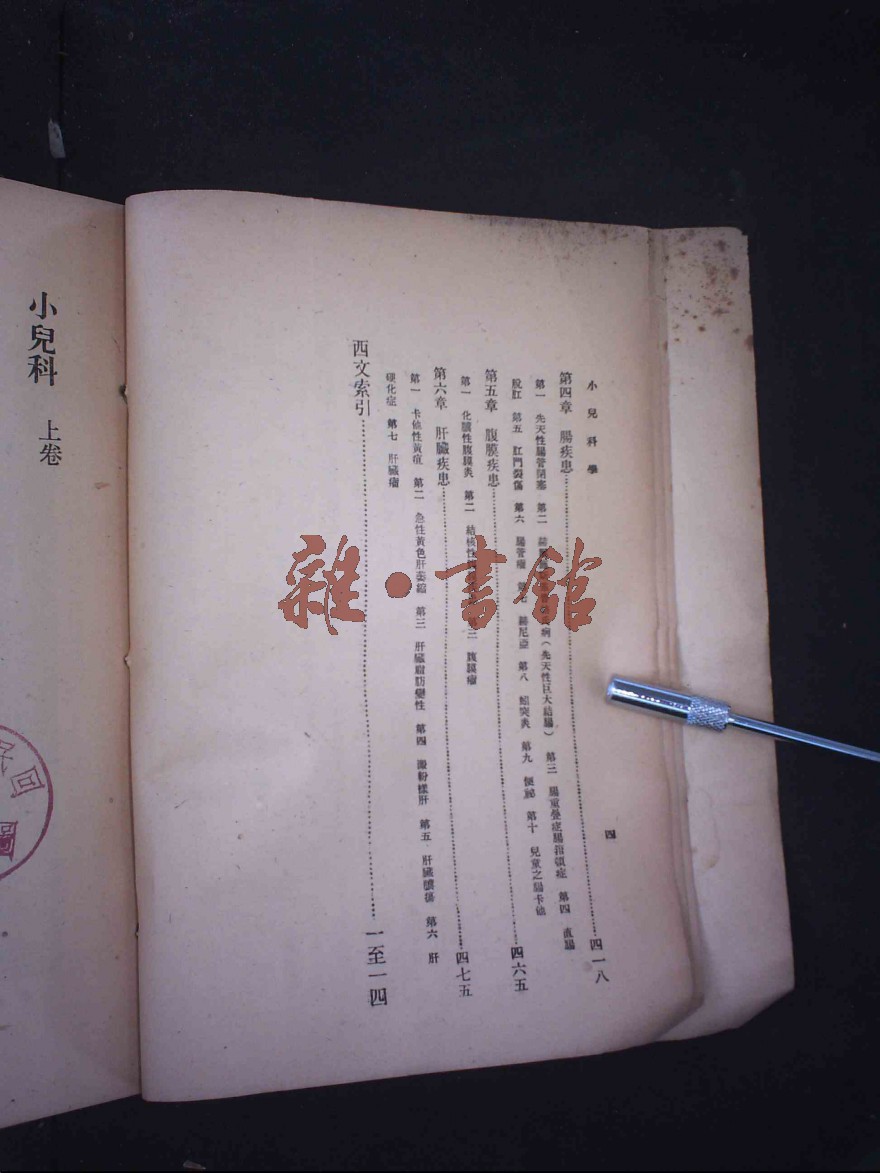 小兒科學
四
第四章 腸疾患……四一八
第一 先天性腸管閉塞 第二 病(先天性巨大結腸) 第三 腸重疊症腸指頓症 第四 直腸
脫肛 第五 肛門裂傷 第六 腸管瘤 第七 赫尼亞 第八 蚓突炎 第九 便祕 第十 兒童之腸卡他
第五章 腹膜疾患……四六五
第一 化膿性腹膜炎 第二 結核性 第三 腹膜瘤
第六章 肝臟疾患……四七五
第一 卡他性黃疸 第二 急性黃色肝萎縮 第三 肝臟脂肪變性 第四 澱粉樣肝 第五 肝臟膿瘍 第六 肝
硬化症 第七 肝臟瘤
西文索引……一至一四
小兒科 上卷
雜·書館
圖